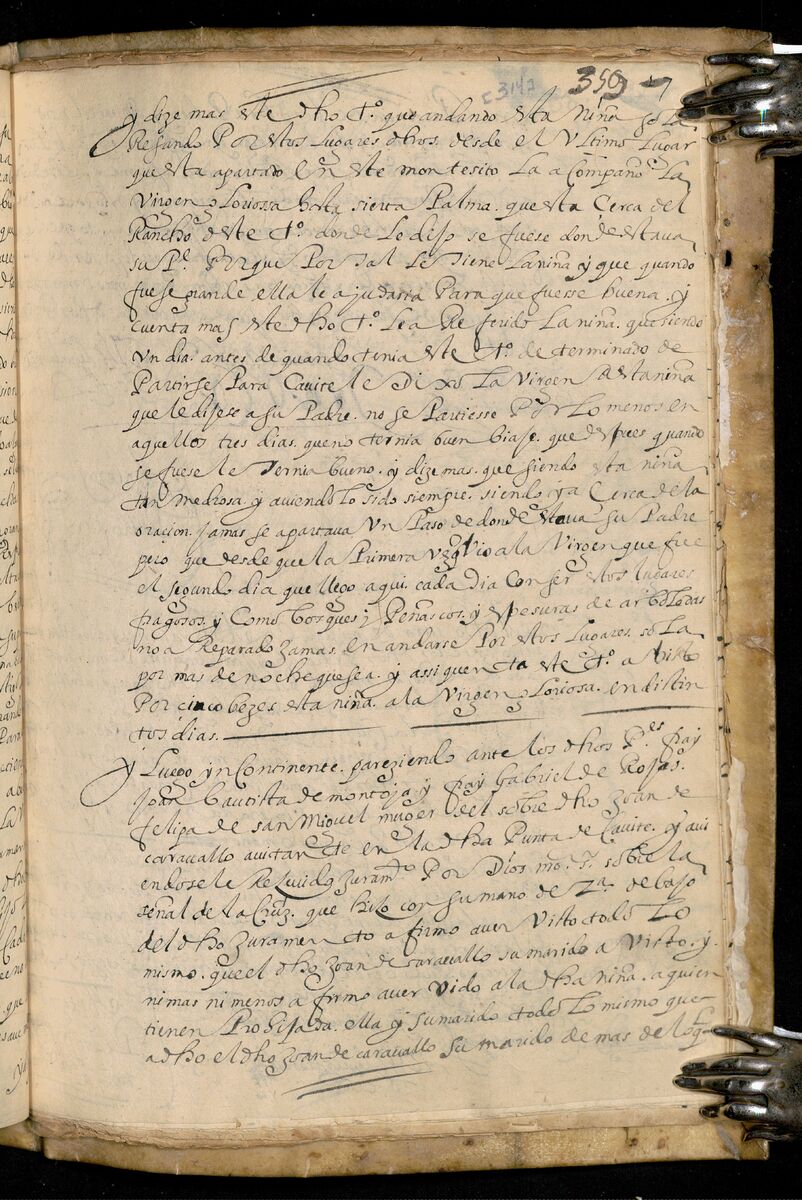 c3147 359 7
y dize mas este dho tº. que andando esta niña sola
Resando Por estos Lugares dhos. desde el Vltimo Lugar
que esta apartado En este montesito La acompaño. La
Virgen Gloriossa hasta sierta Palma. que esta Cerca del
Rancho deste tº. donde Le dijo se fuese donde estava
su Pe. Porque Por tal Le tiene La niña y que quando
fuese grande ella le ajudaria Para que fuesse buena. y
cuenta mas este dho tº. Le a Referido La niña. que siendo
Vn dia. antes de quando tenia este tº. determinado de
Partirse Para Cavite le Dixo La Virgen a esta niña
que le dijese a su Padre. no se Partiesse Por Lo menos en
aquellos tres dias. que no ternia buen biaje. que despues quando
se fuese le ternia bueno. y dize mas. que siendo esta niña
tan medrosa. y aviendolo sido siempre. siendo ya Cerca de la
oracion. jamas se apartava Vn Paso de donde estava su Padre
pero que desde que la Primera vez que Vio a la Virgen que fue
el segundo dia que llego aqui. cada Dia con ser estos lugares
fragosos. y Como bosques y Peñascos. y espesuras de arboledas
no a Reparado Jamas. en andarse Por estos Lugares. sola
por mas de noche que sea. y assi quenta este tº. a visto
Por cinco bezes esta niña. a la Virgen Gloriosa. en distin
tos dias.
y Luego yncontinente. pareziendo ante los dhos Pes. fray
Joan bautista de montoja. y fray Gabriel de Rojas.
felipa de san Miguel muger del sobredho Joan de
caravallo avitante en la dha Punta de Cavite. y avi
endosele Recivido Juramto. Por Dios nro. sr. sobre la
señal de la Cruz. que hizo con su mano dera. debajo
del dho Juramento afirmo aver Visto todo Lo
mismo. que el dho Joan de Caravallo su marido a Visto. y
ni mas ni menos afirmo aver Vido a la dha niña. a quien
tienen Prohijada. ella y su marido todo Lo mismo que
a dho el dho Joan de caravallo su marido demas de lo que